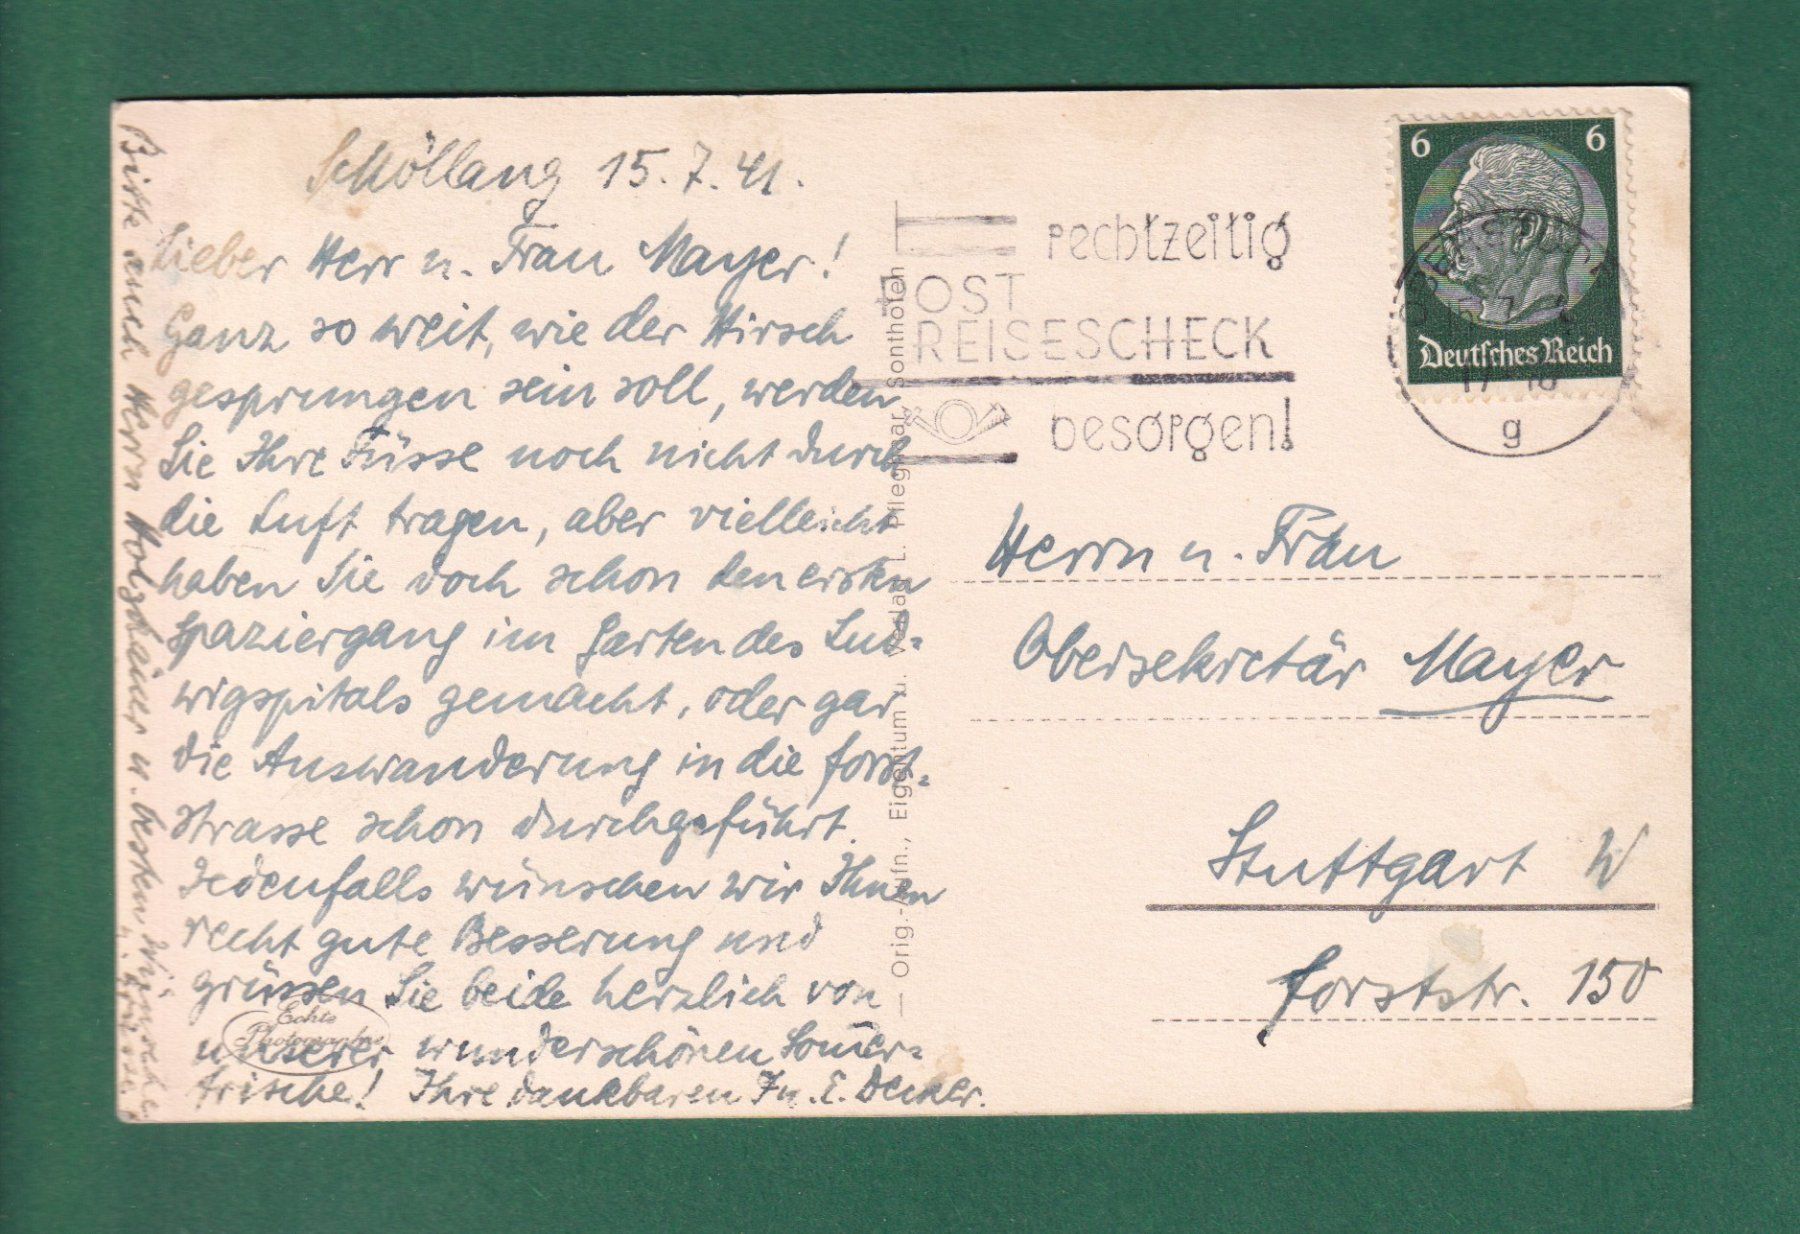 Schöllang 15.7.41.
Lieber Herr u. Frau Mayer!
Ganz so weit, wie der Hirsch
gesprungen sein soll, werden
Sie Ihre Füsse noch nicht durch
die Luft tragen, aber vielleicht
haben Sie doch schon den ersten
Spaziergang im Garten des Lud-
wigspitals gemacht, oder gar
die Auswanderung in die Forst-
strasse schon durchgeführt.
Jedenfalls wünschen wir Ihnen
recht gute Besserung und
grüssen Sie beide herzlich von
unserer wunderschönen Som̄er-
frische! Ihre dankbaren Fr. E. Decker.
Bitte auch Herrn Holzhäuer u. besten Wünsche
u. Grüsse.
Echte
Photographie
— Orig.-Aufn., Eigentum u. Verlag L. Sonthofen
rechtzeitig
POST
REISESCHECK
besorgen!
6 6
Deutsches Reich
15.7
17-18
g
Herrn u. Frau
Obersekretär Mayer
Stuttgart W
Forststr. 150